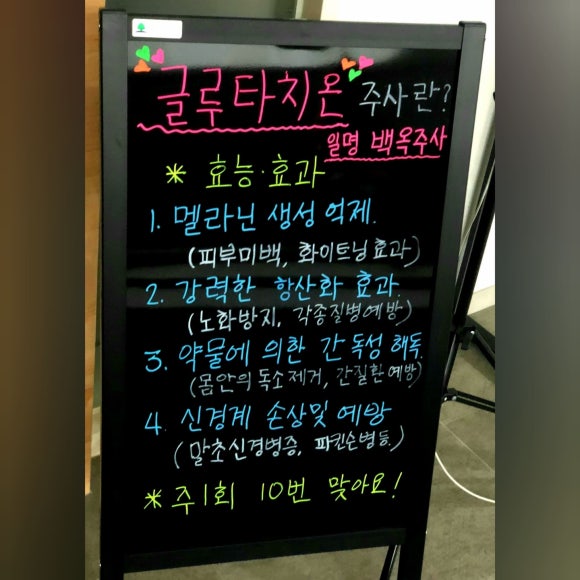 글루타치온 주사란?
일명 백옥주사
* 효능·효과
1. 멜라닌 생성 억제.
(피부미백, 화이트닝효과)
2. 강력한 항산화 효과.
(노화방지, 각종질병예방)
3. 약물에 의한 간 독성 해독.
(몸안의 독소제거, 간질환예방)
4. 신경계 손상및 예방
(말초신경병증, 파킨슨병등.)
* 주1회 10번 맞아요!